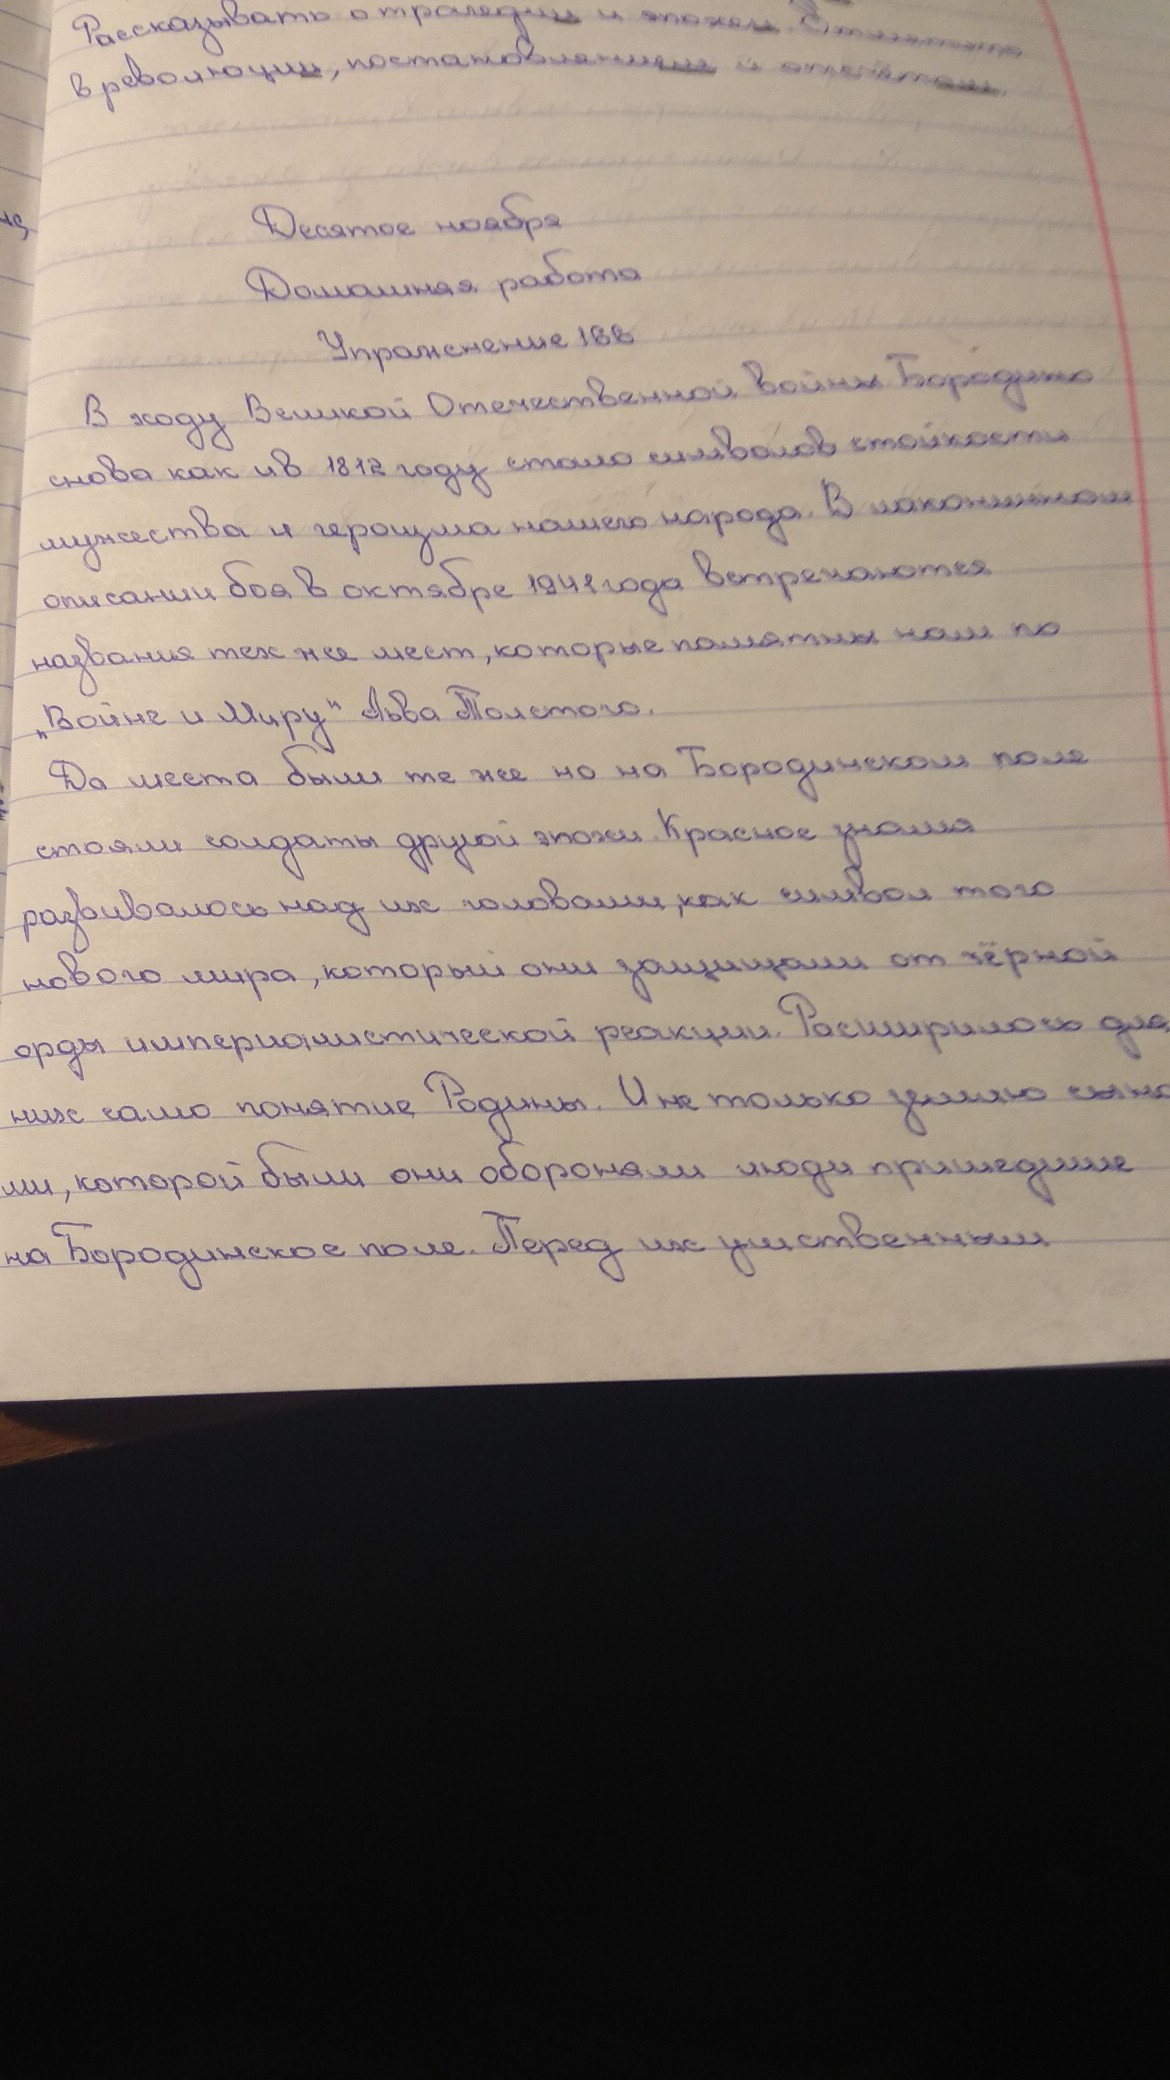 Рассказывать о трагедии и эпохе.
в революции, постановлении и отчётам.
Десятое ноября
Домашняя работа
Упражнение 188
В ходу Великой Отечественной войны Бородино
снова как и в 1812 году стало символов стойкости
мужества и героизма нашего народа. В лаконичном
описании боя в октябре 1941 года встречаются
названия тех же мест, которые памятны нам по
„Войне и Миру“ Льва Толстого.
Да места были те же но на Бородинском поле
стояли солдаты другой эпохи. Красное знамя
развивалось над их головами, как символ того
нового мира, который они защищали от чёрной
орды империалистической реакции. Расширилось для
них само понятие Родины. И не только землю сына
ми, которой были они обороняли люди пришедшие
на Бородинское поле. Перед их умственным